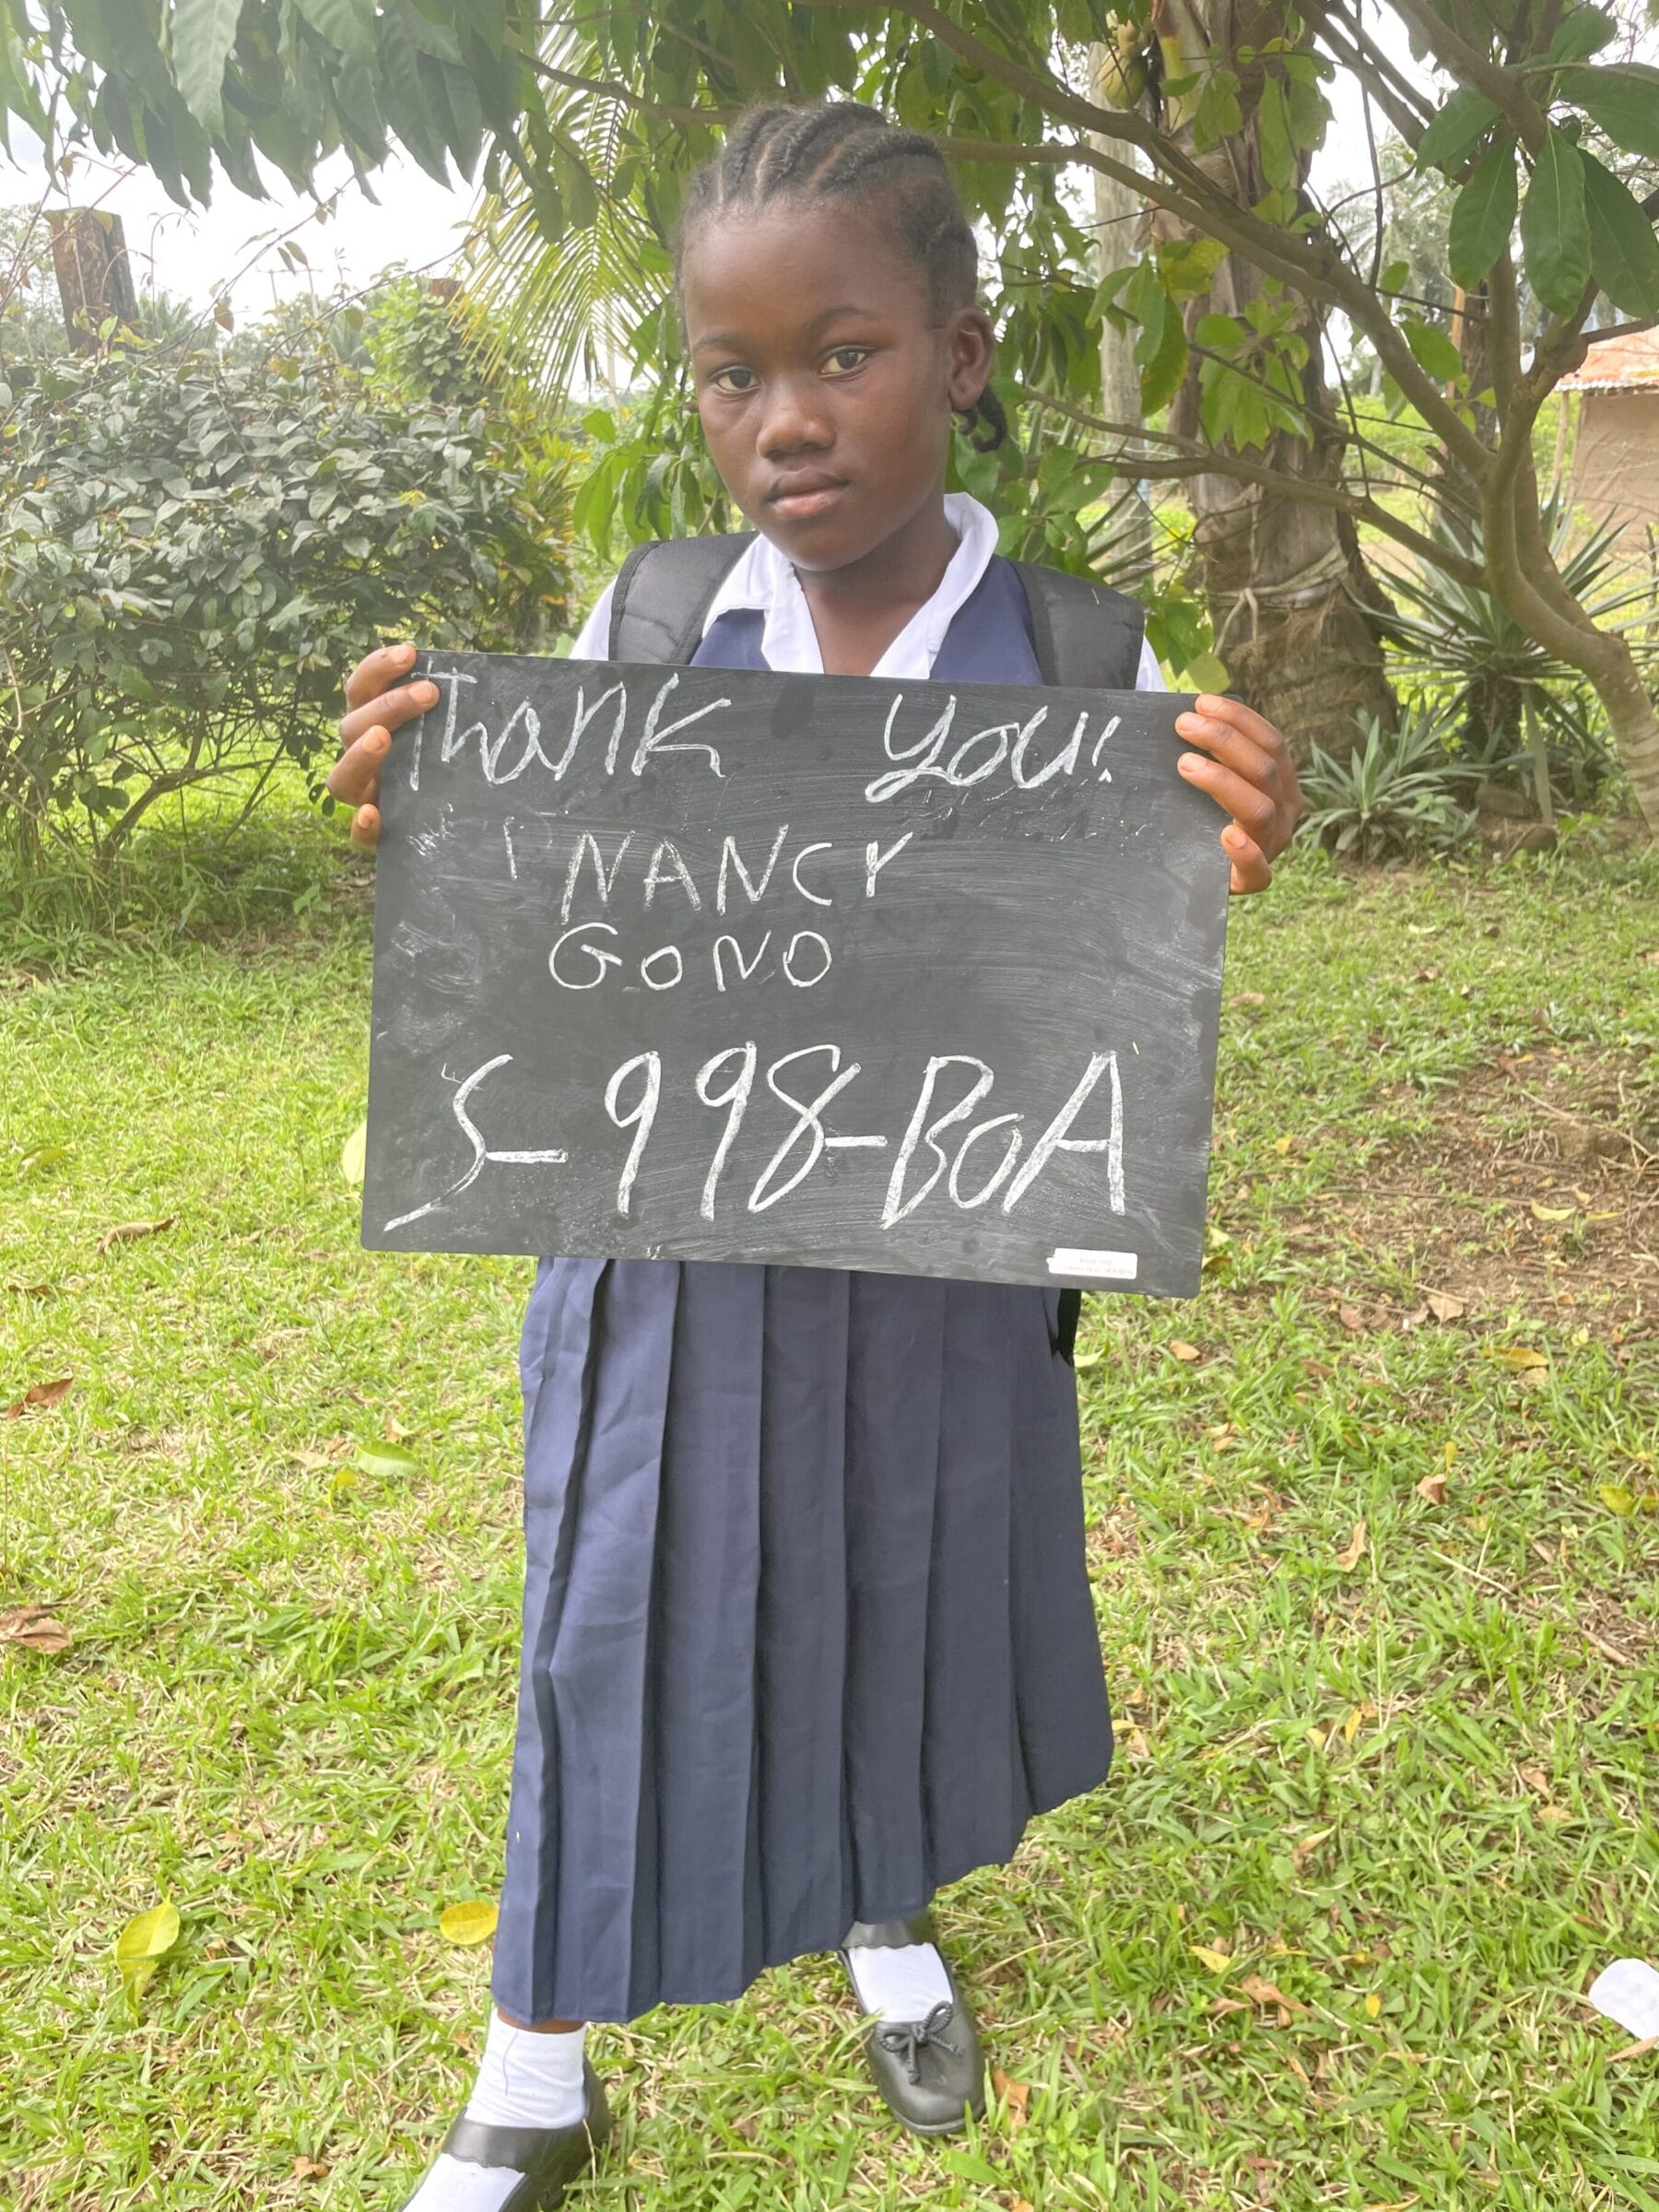 Thank you!
NANCY
GONO
S-998-BOA